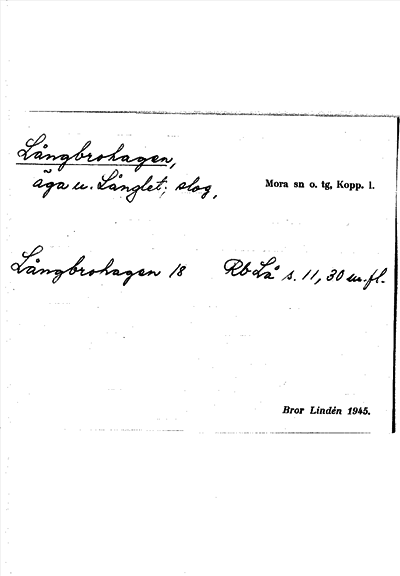 Långbrohagen,
äga u. Långlet; slog,
Mora sn o. tg, Kopp. l.
Långbrohagen 18 Rb Lå s. 11, 30 m.fl.
Bror Lindén 1945.